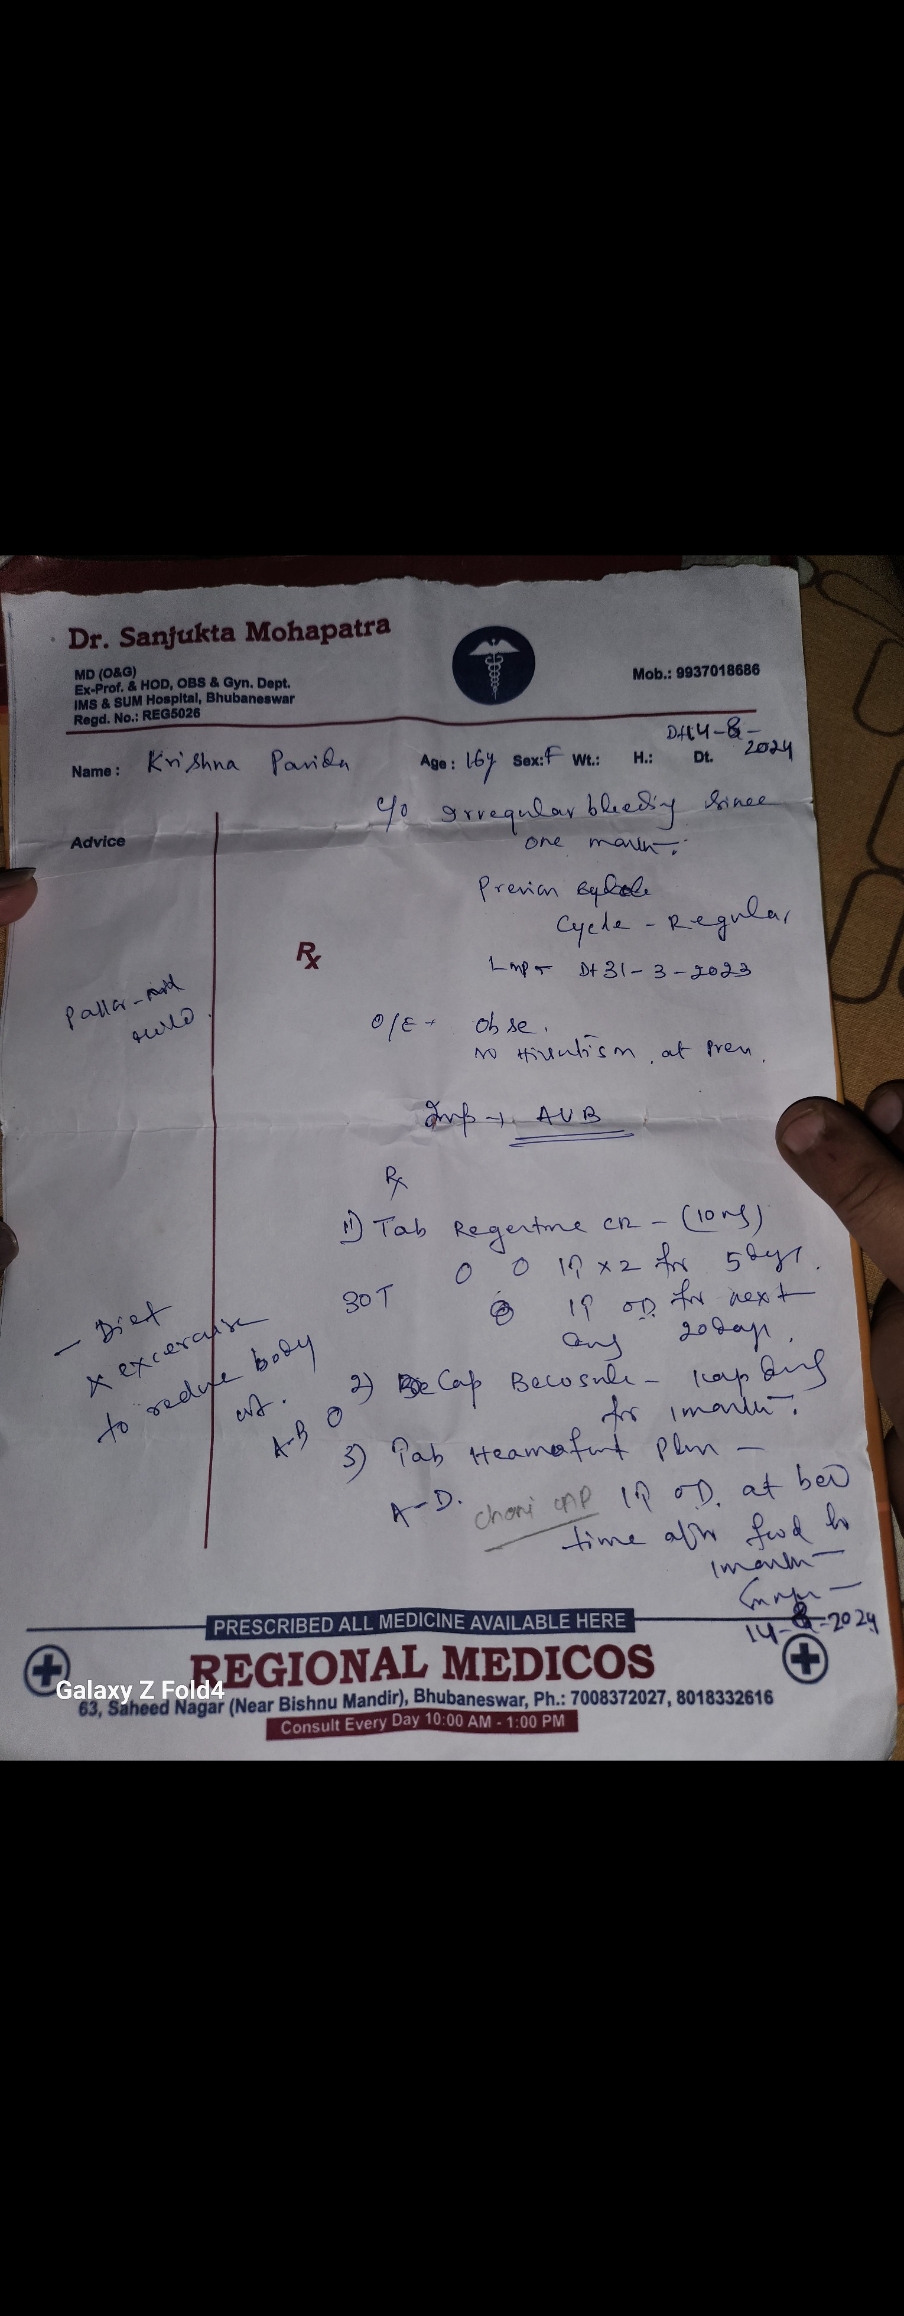 Dr. Sanjukta Mohapatra
MD (O&G)
Ex-Prof. & HOD, OBS & Gyn. Dept.
IMS & SUM Hospital, Bhubaneswar
Regd. No.: REG5026
Mob.: 9937018686
Name: Krishna Parida Age: 16y Sex: F Wt.: H.: Dt. 14-8-2024
c/o Irregular bleeding since
one month.
Advice
Cycle - Regular
Lmp - Dt 31-3-2023
Rx
Pallor - mild
O/E - Obse.
No Hirsutism at
Imp → AUB
Rx
1) Tab CR - (10 mg)
O O 1T x 2 for 5 days.
30T 1T OD for next
20 days.
- Diet
excercise
to reduce body
wt.
2) Cap Becosule - 1cap
for 1 month.
A-B O
3) Tab
A-D. 1T O.D. at bed
time food
1 month
14-8-2024
PRESCRIBED ALL MEDICINE AVAILABLE HERE
REGIONAL MEDICOS
Galaxy Z Fold4
63, Saheed Nagar (Near Bishnu Mandir), Bhubaneswar, Ph.: 7008372027, 8018332616
Consult Every Day 10:00 AM - 1:00 PM